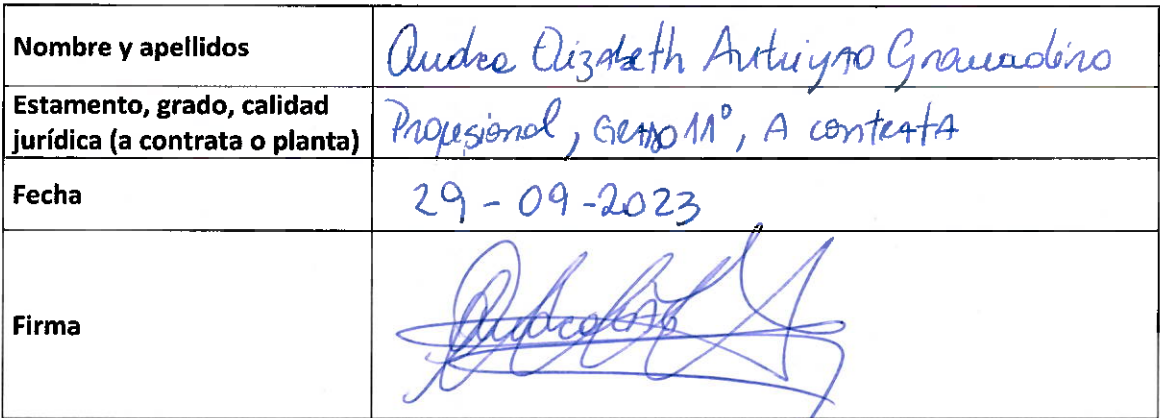 Nombre y apellidos
Andrea Elizabeth Antriyao Granadino
Estamento, grado, calidad
jurídica (a contrata o planta)
Profesional, Grado 11°, A contrata
Fecha
29-09-2023
Firma